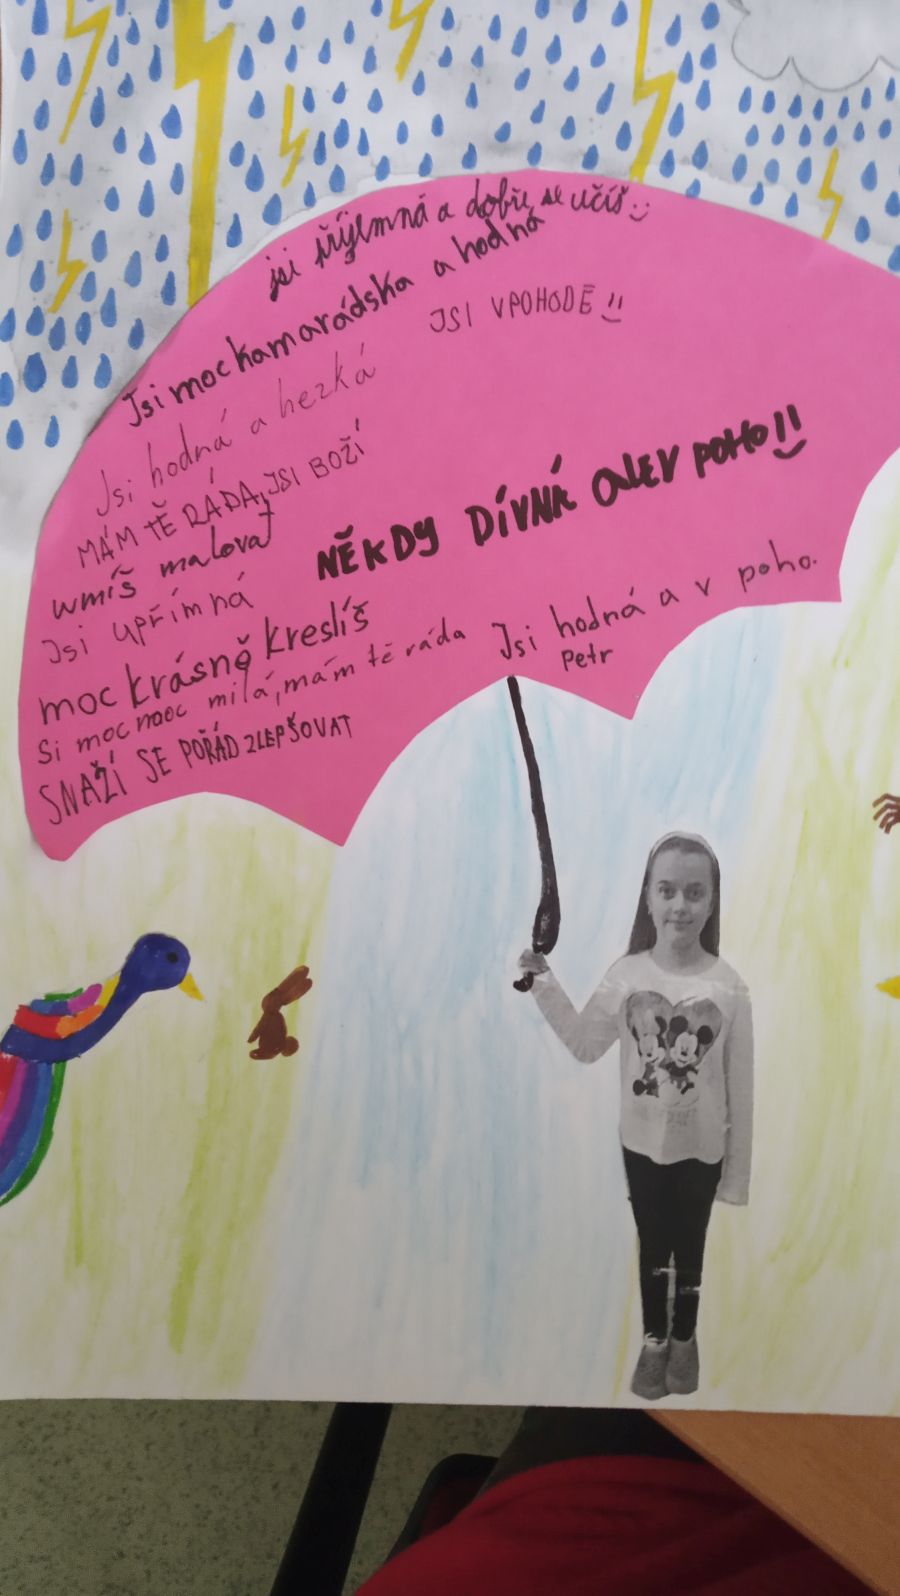 jsi příjemná a dobře se učíš :)
Jsi moc kamarádska a hodná
JSI V POHODĚ !!
Jsi hodná a hezká
MÁM TĚ RÁDA, JSI BOŽÍ
umíš malovat
NĚKDY DÍVNÁ ALE V POHO !!
Jsi upřímná
moc krásně kreslíš
Jsi hodná a v poho.
Petr
Si moc moc milá, mám tě ráda
SNAŽÍ SE POŘÁD ZLEPŠOVAT